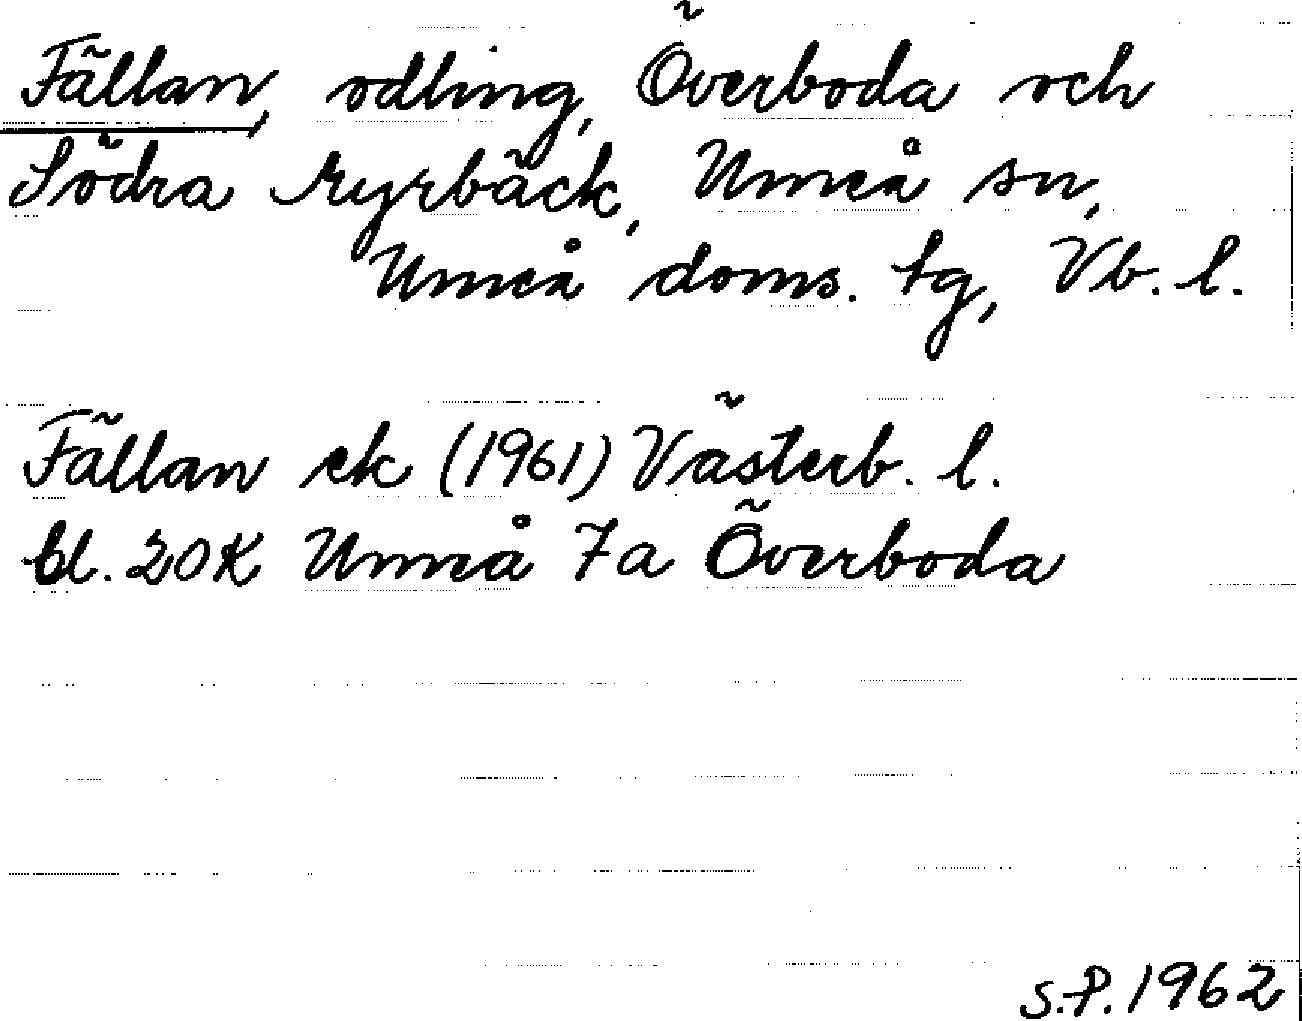 Fällan, odling, Överboda och
Södra Kyrbäck, Umeå sn,
Umeå doms. tg, Vb. l.
Fällan ek (1961) Västerb. l.
bl. 20K Umeå 7a Överboda
S.P. 1962